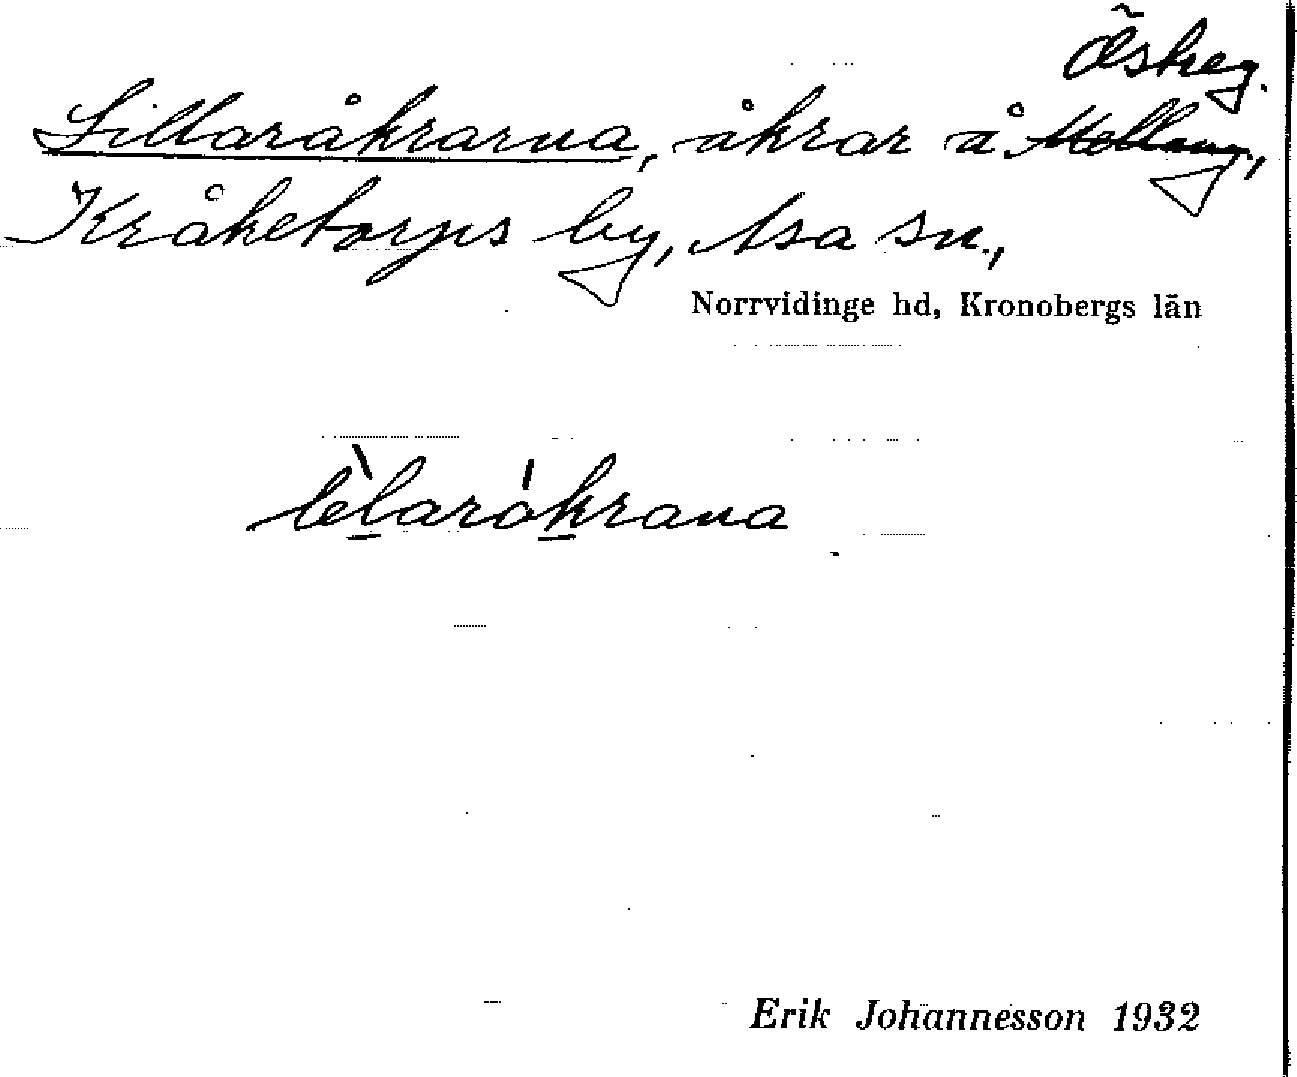 Östreg.
Lillaråkrarna, åkrar å Mellang,
Kråketorps by, Asa sn.,
Norrvidinge hd, Kronobergs län
lèlarókrana
Erik Johannesson 1932